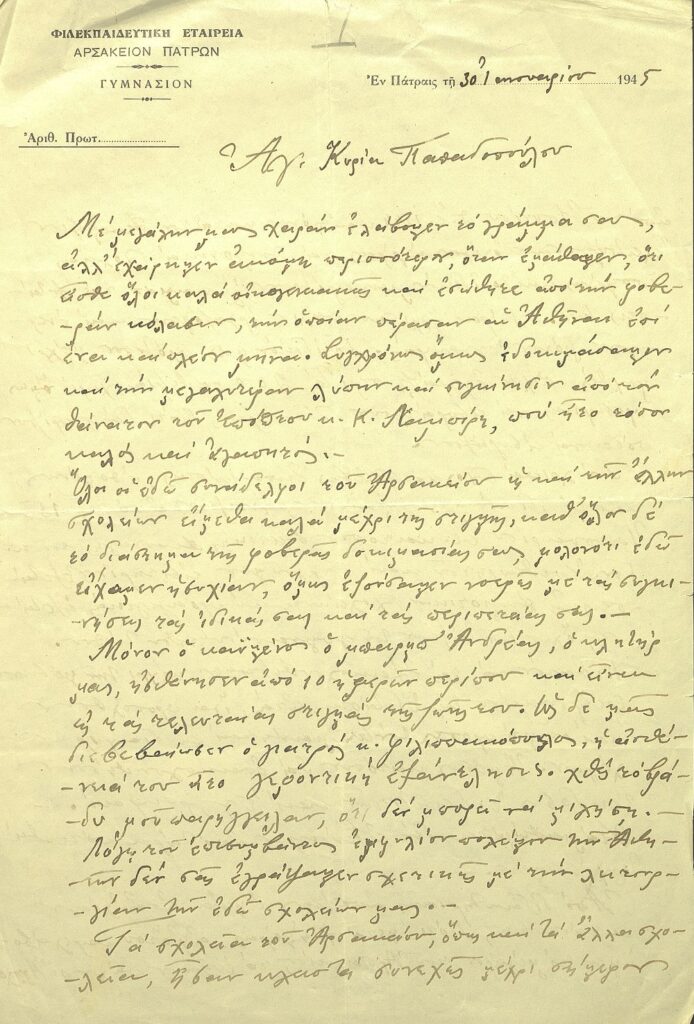 ΦΙΛΕΚΠΑΙΔΕΥΤΙΚΗ ΕΤΑΙΡΕΙΑ
ΑΡΣΑΚΕΙΟΝ ΠΑΤΡΩΝ
ΓΥΜΝΑΣΙΟΝ
Ἐν Πάτραις τῇ 30 Ἰανουαρίου 1945
Ἀριθ. Πρωτ.
Ἀγ. Κυρία Παπαδοπούλου
Μέ μεγάλην μας χαράν ἐλάβομεν τό γράμμα σας,
ἀλλ' ἐχάρημεν ἀκόμη περισσότερον, ὅταν ἐμάθαμεν, ὅτι
εἶσθε ὅλοι καλά οἰκογενειακῶς καί ἐσώθητε ἀπό τήν φοβε-
-ράν κόλασιν, τήν ὁποίαν πέρασαν αἱ Ἀθῆναι ἐπί
ἕνα καί πλέον μῆνα. Συγχρόνως ὅμως ἐδοκιμάσαμεν
καί τήν μεγαλυτέραν λύπην καί συγκίνησιν ἀπό τόν
θάνατον τοῦ κ. Κ. πού ἦτο τόσον
καλός καί ἀγαπητός.-
Ὅλοι οἱ ἐδῶ συνάδελφοι τοῦ Ἀρσακείου ὡς καί τῶν ἄλλων
σχολείων εἴμεθα καλά μέχρι τῆς στιγμῆς, καθ' ὅλον δέ
τό διάστημα τῆς φοβερᾶς δοκιμασίας σας, μολονότι ἐδῶ
εἴχαμεν ἡσυχίαν, ὅμως ἐζούσαμεν νοερῶς μέ τάς συγκι-
-νήσεις τάς ἰδικάς σας καί τάς περιπετείας σας.-
Μόνον ὁ καϋμένος ὁ μπάρμπ' Ἀνδρέας, ὁ κλητήρ
μας, ἠσθένησεν ἀπό 10 ἡμερῶν περίπου καί εἶναι
εἰς τάς τελευταίας στιγμάς τῆς ζωῆς του. Ὡς δέ μᾶς
διεβεβαίωσεν ὁ γιατρός κ. Φιλιππακόπουλος, ἡ ἀσθέ-
-νειά του ἦτο γεροντική ἐξάντλησις. Χθές τό βρά-
-δυ μοῦ παρήγγειλαν, ὅτι δέν μπορεῖ νά μιλήσῃ.-
Λόγῳ τοῦ ἐπισυμβάντος ἐμφυλίου πολέμου τῶν Ἀθη-
-νῶν δέν σᾶς ἐγράψαμεν σχετικῶς μέ τήν λειτουρ-
-γίαν τῶν ἐδῶ σχολείων μας.-
Τά σχολεῖα τοῦ Ἀρσακείου, ὅπως καί τά ἄλλα σχο-
-λεῖα, ἦσαν κλειστά συνεχῶς μέχρι σήμερον